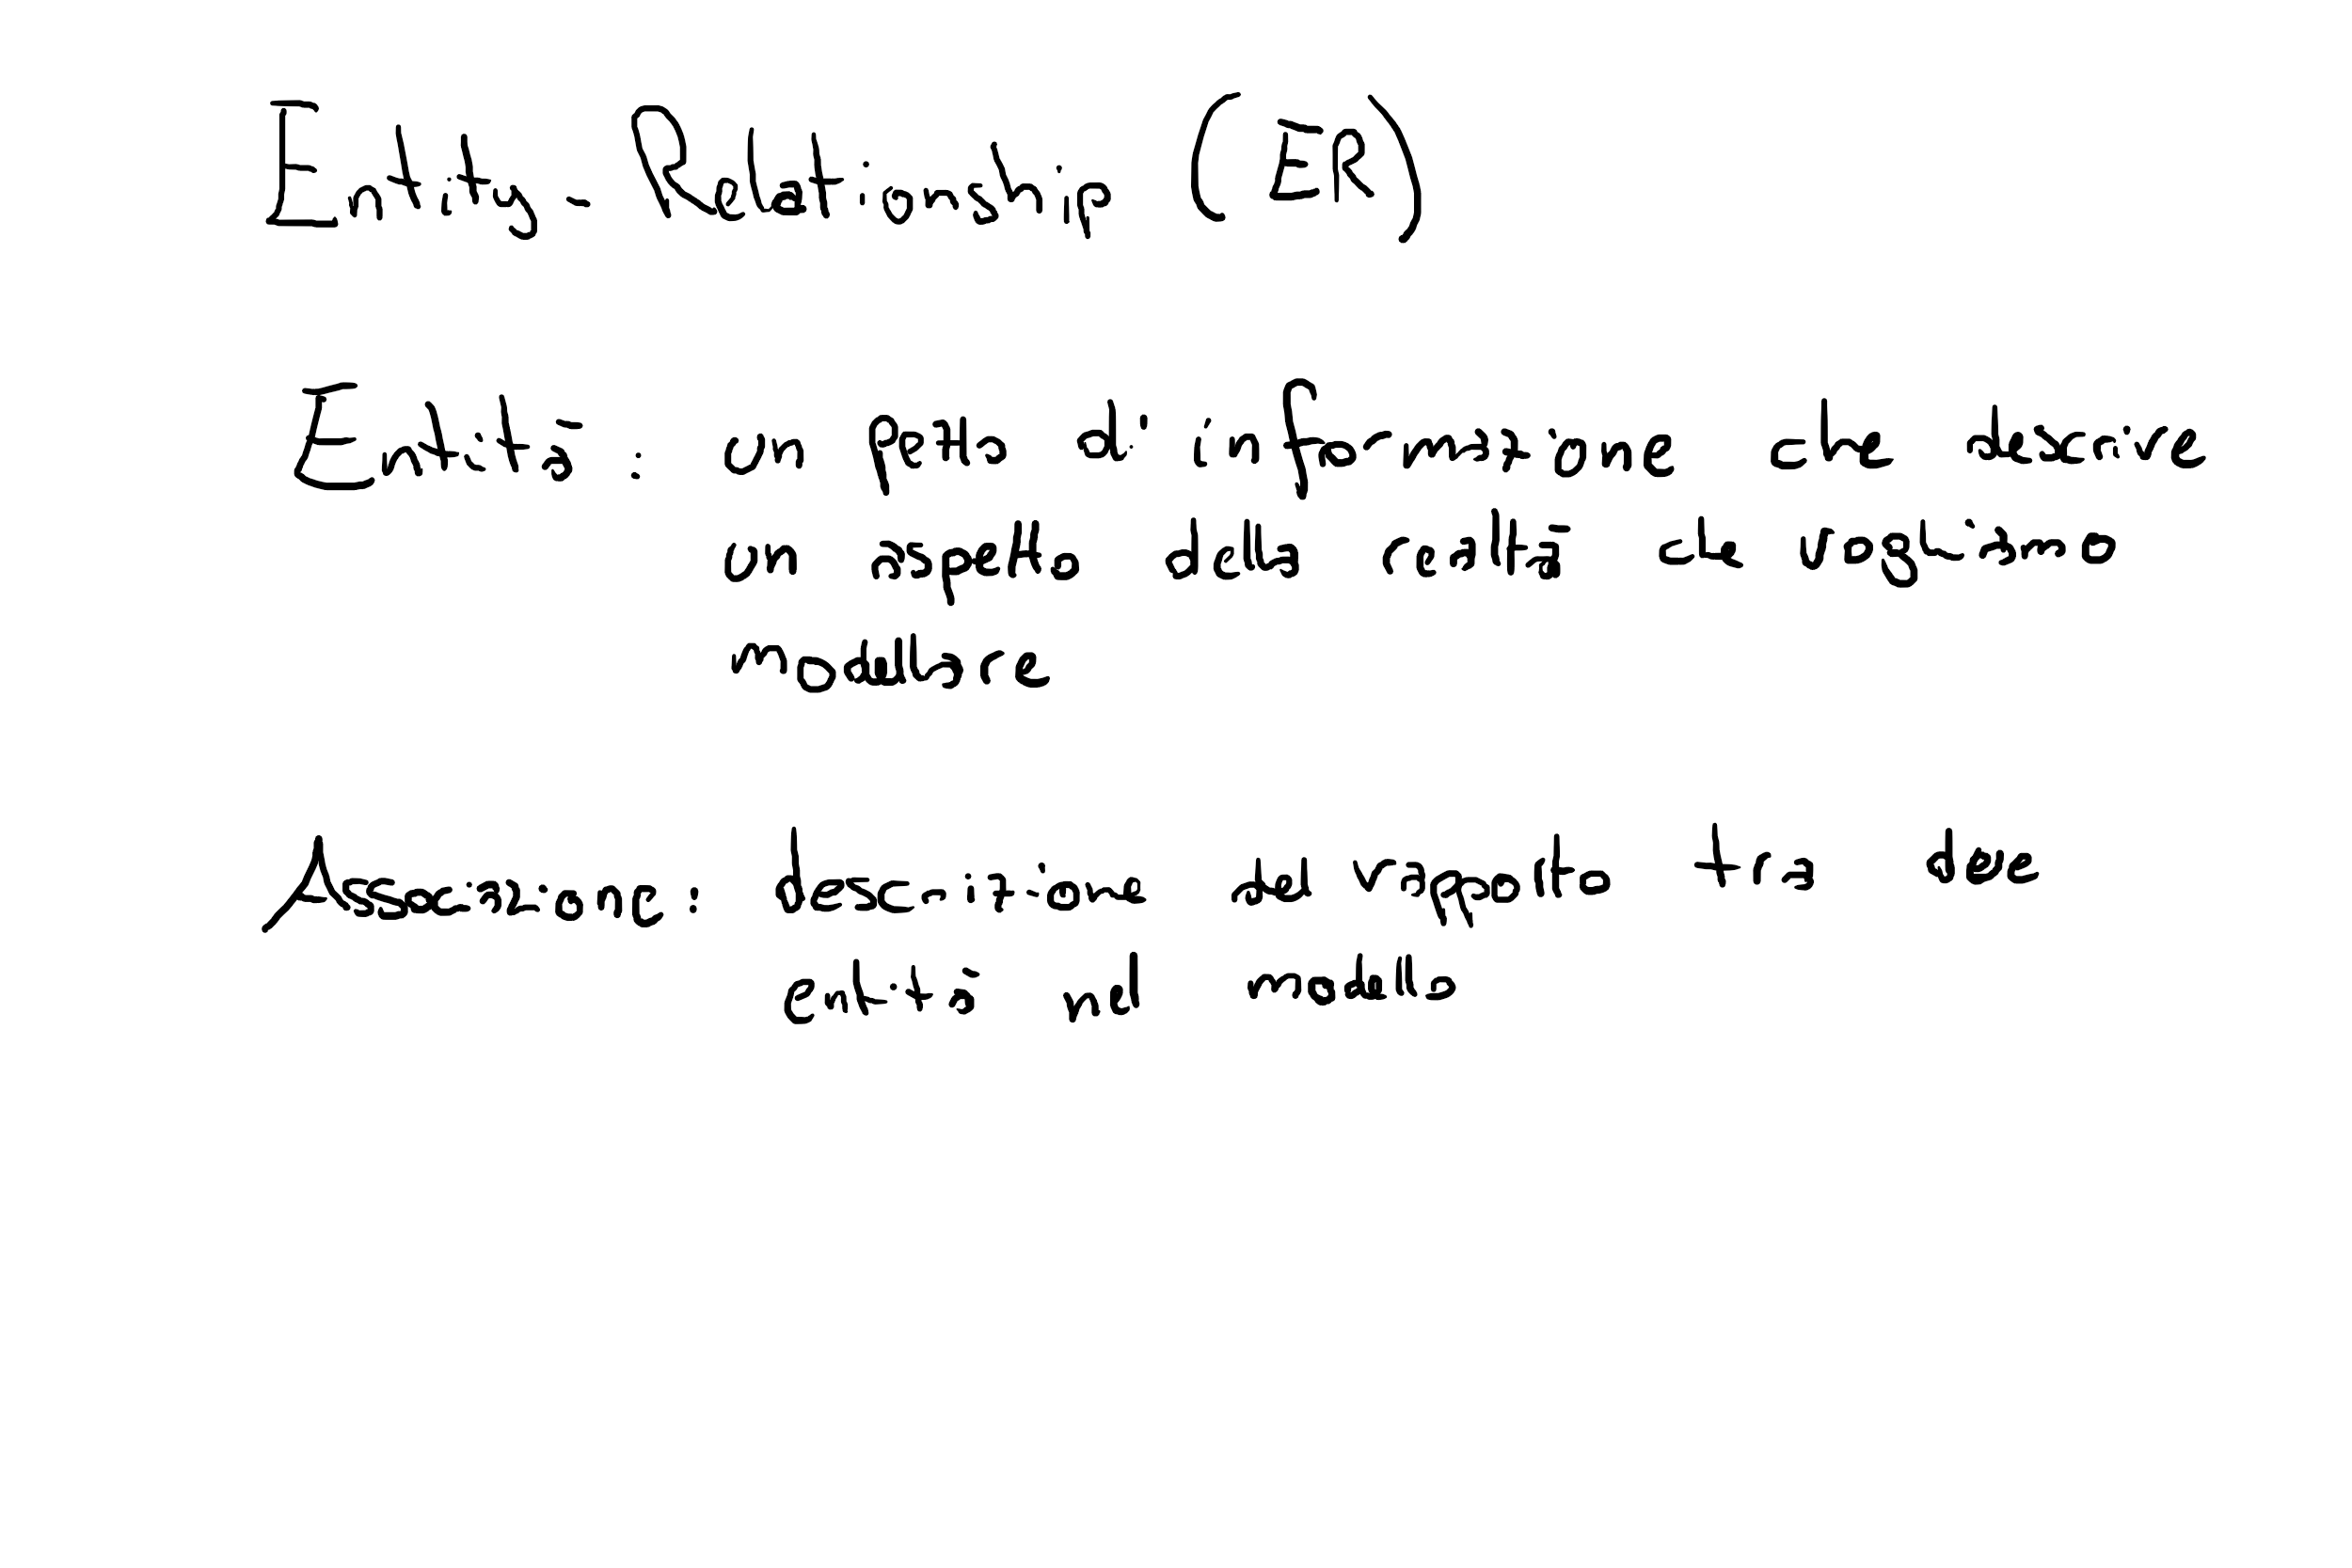 Entity-Relationship (ER)
Entità: un pezzo di informazione che descrive
un aspetto della realtà che vogliamo
modellare
Associazione: descrizione del rapporto tra
entità nel modello